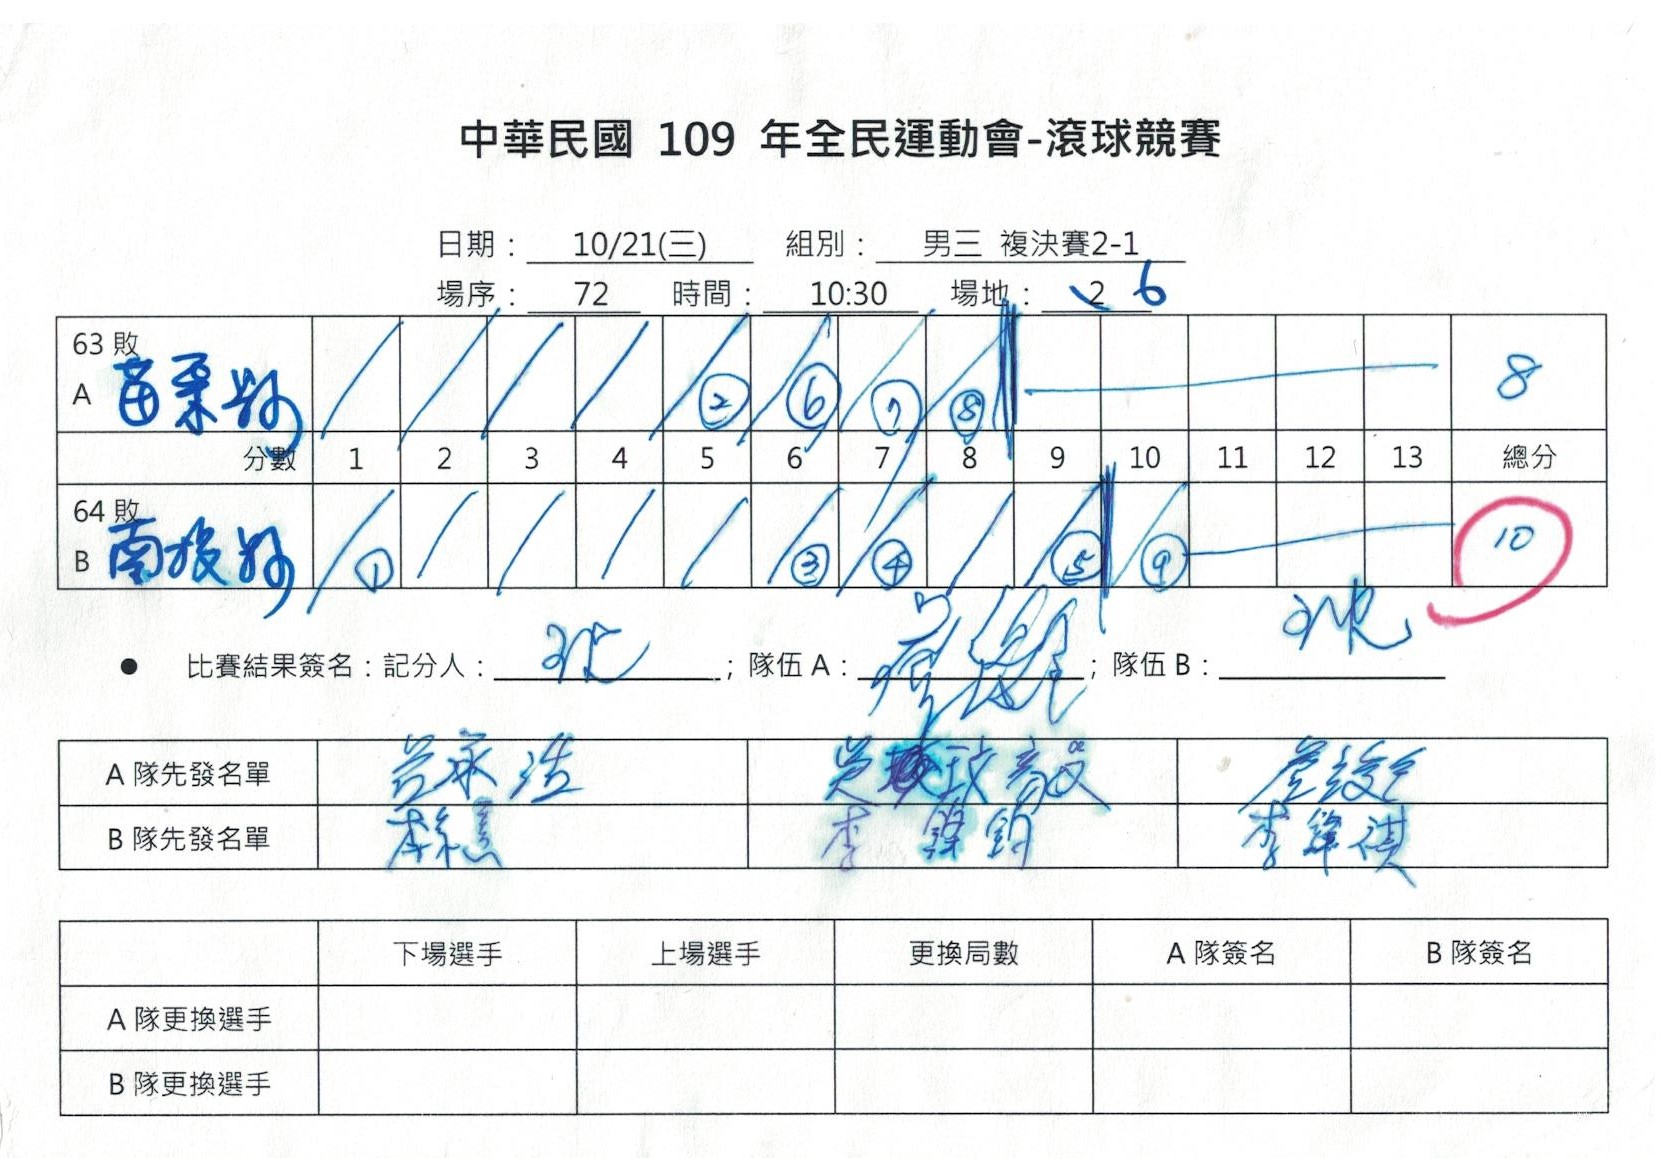 中華民國 109 年全民運動會-滾球競賽
日期： 10/21(三) 組別： 男三 複決賽2-1
場序： 72 時間： 10:30 場地： 2 6
63 敗
A 苗栗縣 ② ⑥ ⑦ ⑧ 8
分數 1 2 3 4 5 6 7 8 9 10 11 12 13 總分
64 敗
B 南投縣 ① ③ ④ ⑤ ⑨ 10
● 比賽結果簽名：記分人： ；隊伍 A： ；隊伍 B：
A 隊先發名單
B 隊先發名單 李
下場選手 上場選手 更換局數 A 隊簽名 B 隊簽名
A 隊更換選手
B 隊更換選手